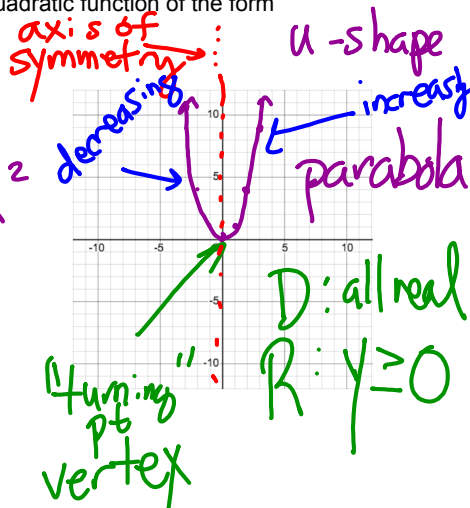 uadratic function of the form
axis of
symmetry
u-shape
decreasing
increasing
parabola
2
10
5
-10
-5
5
10
-5
-10
D: all real
R: y≥0
"turning"
pt
vertex